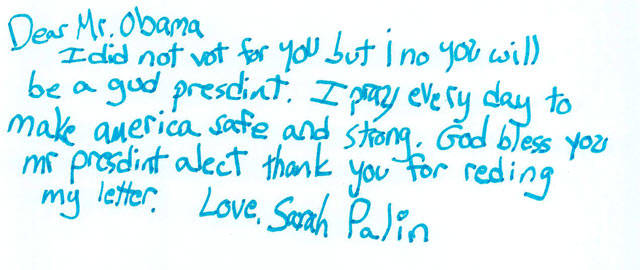 Dear Mr. Obama
I did not vot for you but i no you will
be a gud presdint. I pray every day to
make america safe and strong. God bless you
mr presdint alect thank you for reding
my letter. Love, Sarah Palin